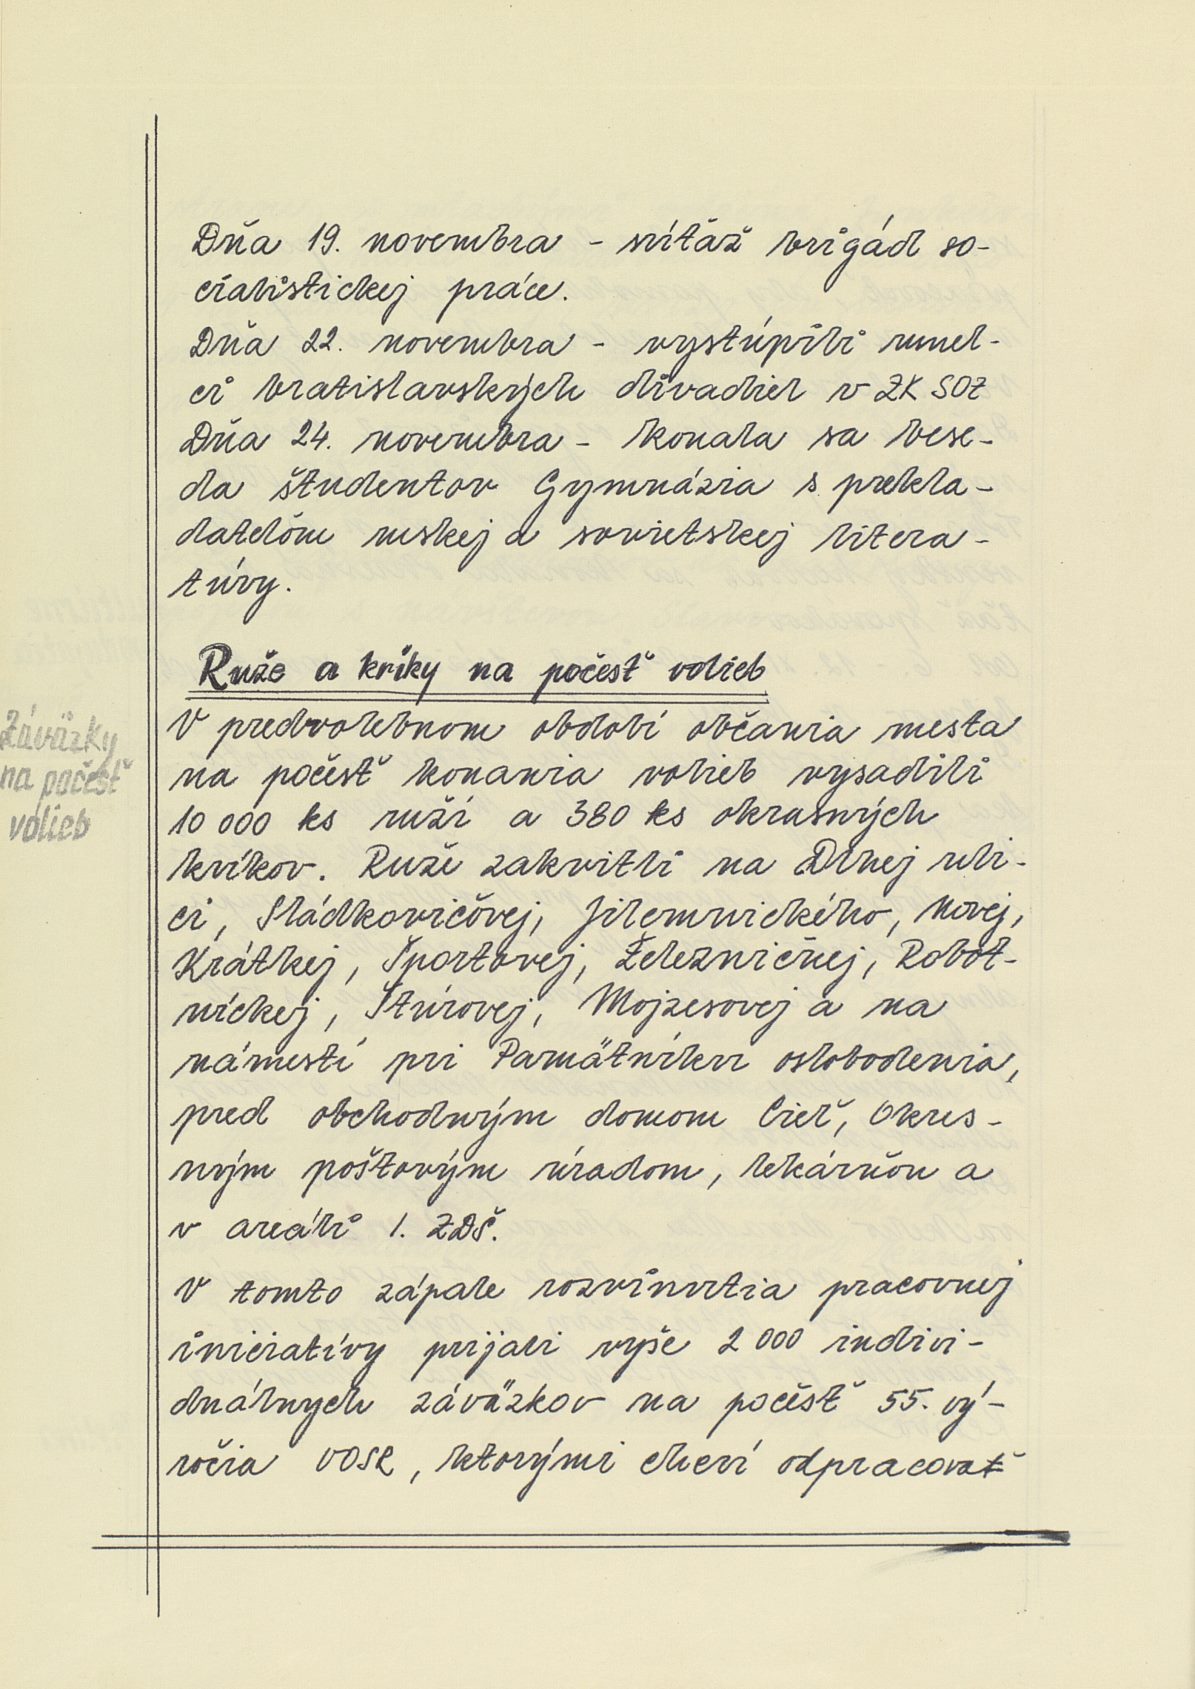 Dňa 19. novembra - súťaž brigád so-
cialistickej práce.
Dňa 22. novembra - vystúpili umel-
ci bratislavských divadiel v ZK SOZ
Dňa 24. novembra - konala sa bese-
da študentov Gymnázia s prekla-
dateľom ruskej a sovietskej litera-
túry.
Ruže a kríky na počesť volieb
Záväzky
na počesť
volieb
V predvolebnom období občania mesta
na počesť konania volieb vysadili
10 000 ks ruží a 380 ks okrasných
kríkov. Ruže zakvitli na Dlhej uli-
ci, Sládkovičovej, Jilemnického, Novej,
Krátkej, Športovej, Železničnej, Robot-
níckej, Štúrovej, Mojzesovej a na
námestí pri Pamätníku oslobodenia,
pred obchodným domom Cieľ, Okres-
ným poštovým úradom, lekárňou a
v areáli 1. ZDŠ.
V tomto zápale rozvinutia pracovnej
iniciatívy prijali vyše 2 000 indivi-
duálnych záväzkov na počesť 55. vý-
ročia VOSR, ktorými chcú odpracovať